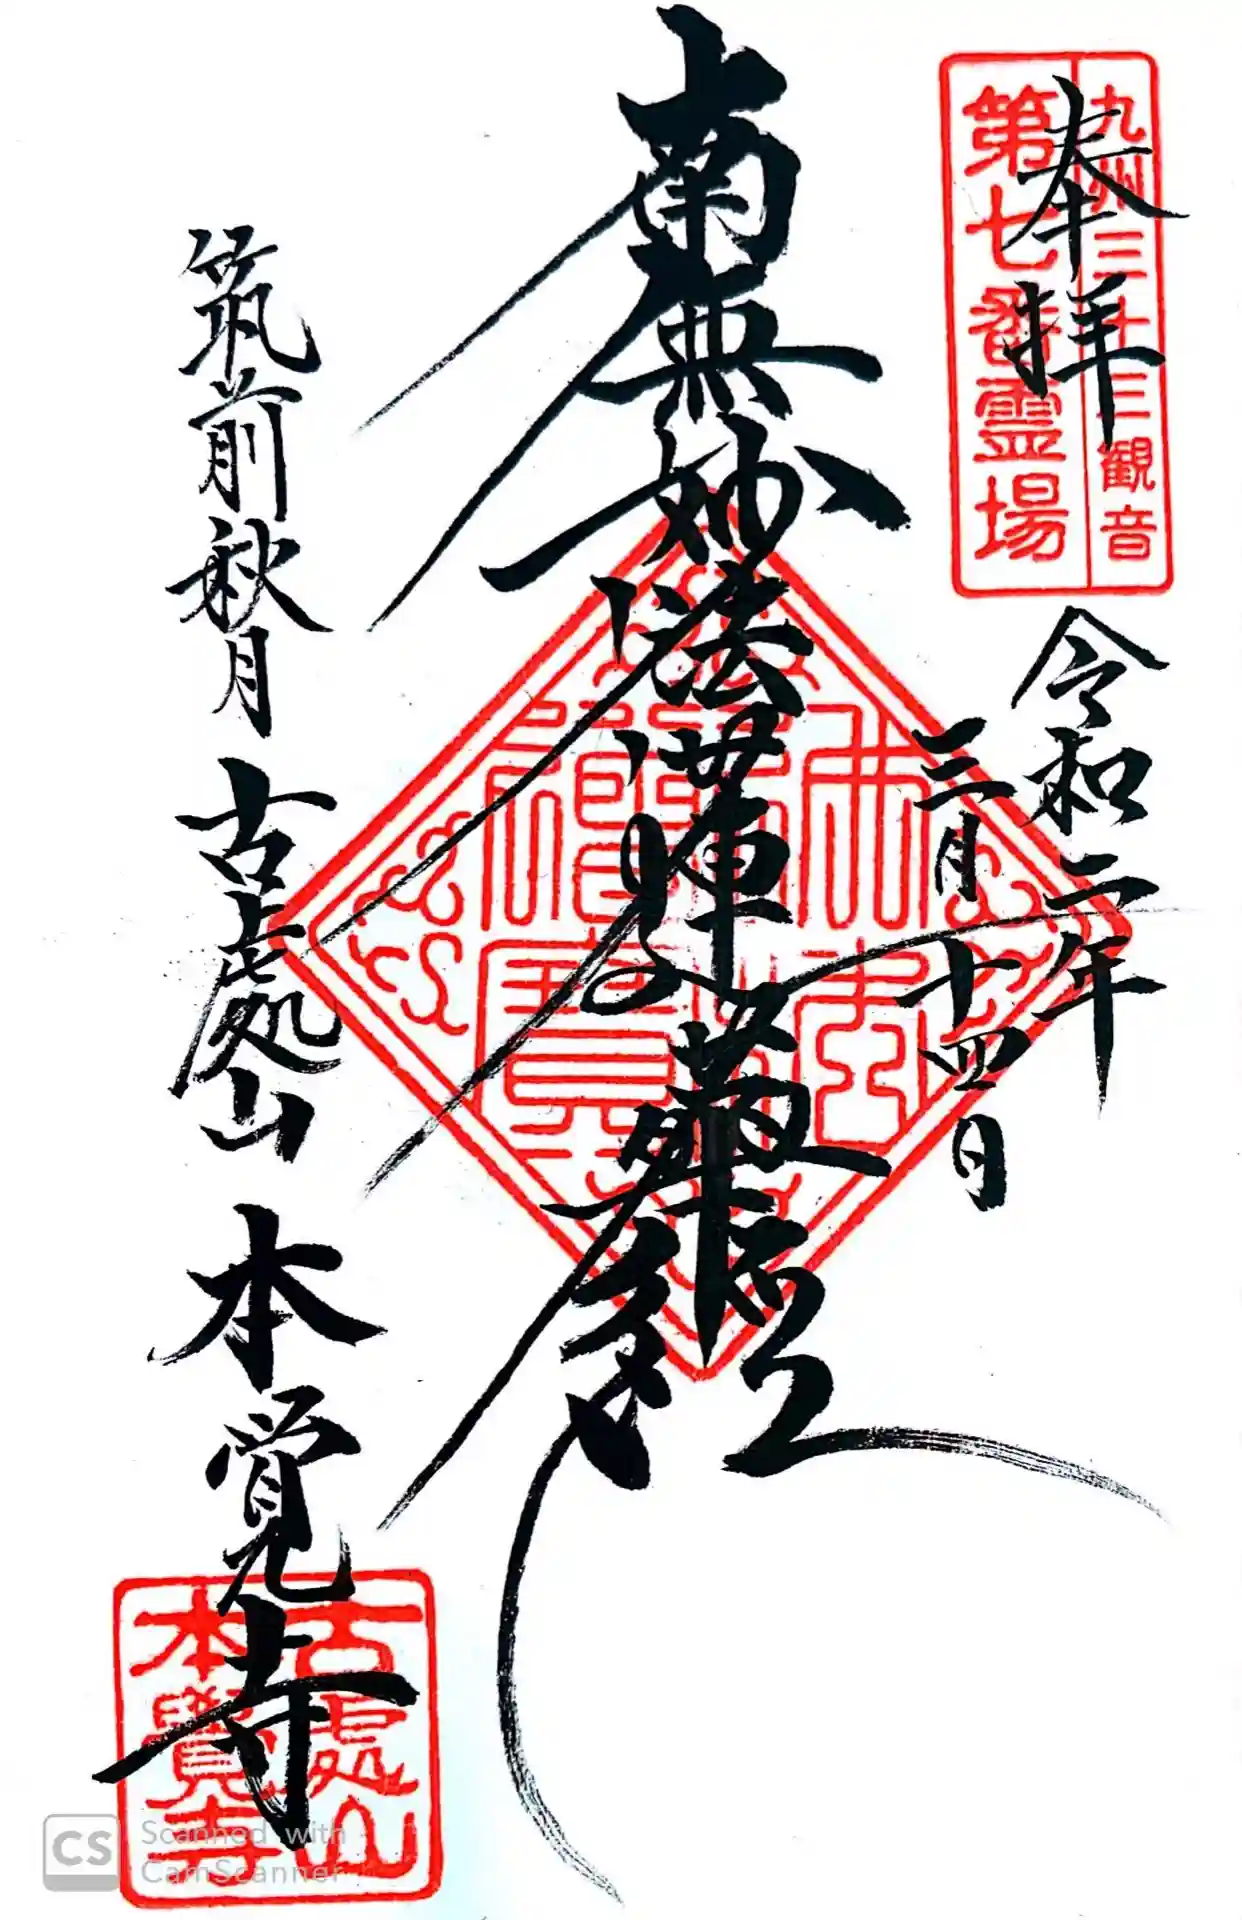 奉拝
九州三十三観音
第七番霊場
令和二年
三月十四日
南無妙法蓮華経
筑前秋月
古處山
本覚寺
古處山
本覺寺
Scanned with
CamScanner
CS